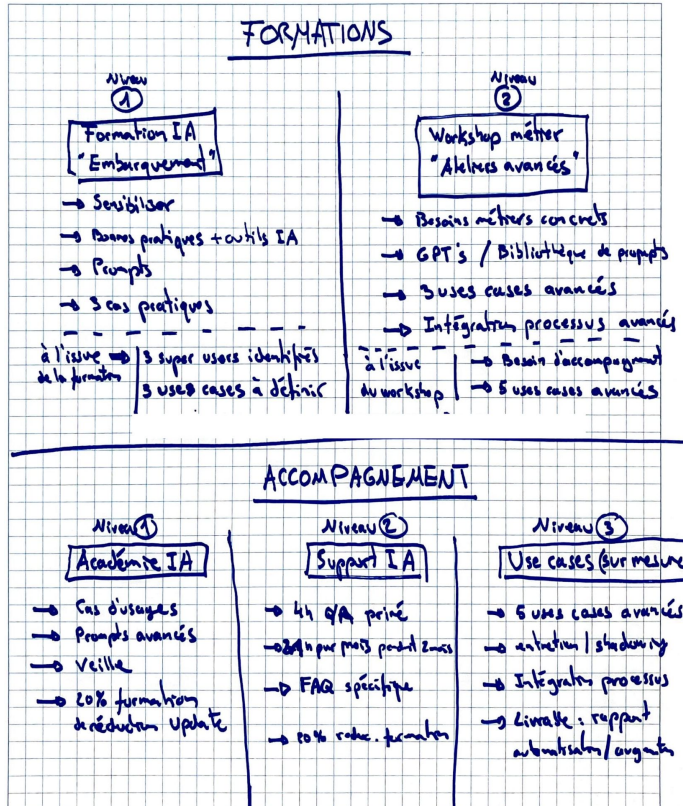 FORMATIONS
Niveau
1
Formation IA
"Embarquement"
→ Sensibiliser
→ Bonnes pratiques + outils IA
→ Prompts
→ 3 cas pratiques
à l'issue de la formation
→ 3 super users identifiés
3 uses cases à définir
Niveau
2
Workshop métier
"Ateliers avancés"
→ Besoins métiers concrets
→ GPT's / Bibliothèque de prompts
→ 3 uses cases avancés
→ Intégration processus avancés
à l'issue
du workshop
→ Besoin d'accompagnement
→ 5 uses cases avancés
ACCOMPAGNEMENT
Niveau 1
Académie IA
→ Cas d'usages
→ Prompts avancés
→ Veille
→ 20% formation
de réduction update
Niveau 2
Support IA
→ 4h Q/A privé
par mois pendant 2 mois
→ FAQ spécifique
→ 20% réduc. formation
Niveau 3
Use cases (sur mesure
→ 5 uses cases avancés
→ entretien / shadowing
→ Intégration processus
→ Livrable : rapport
automatisation /